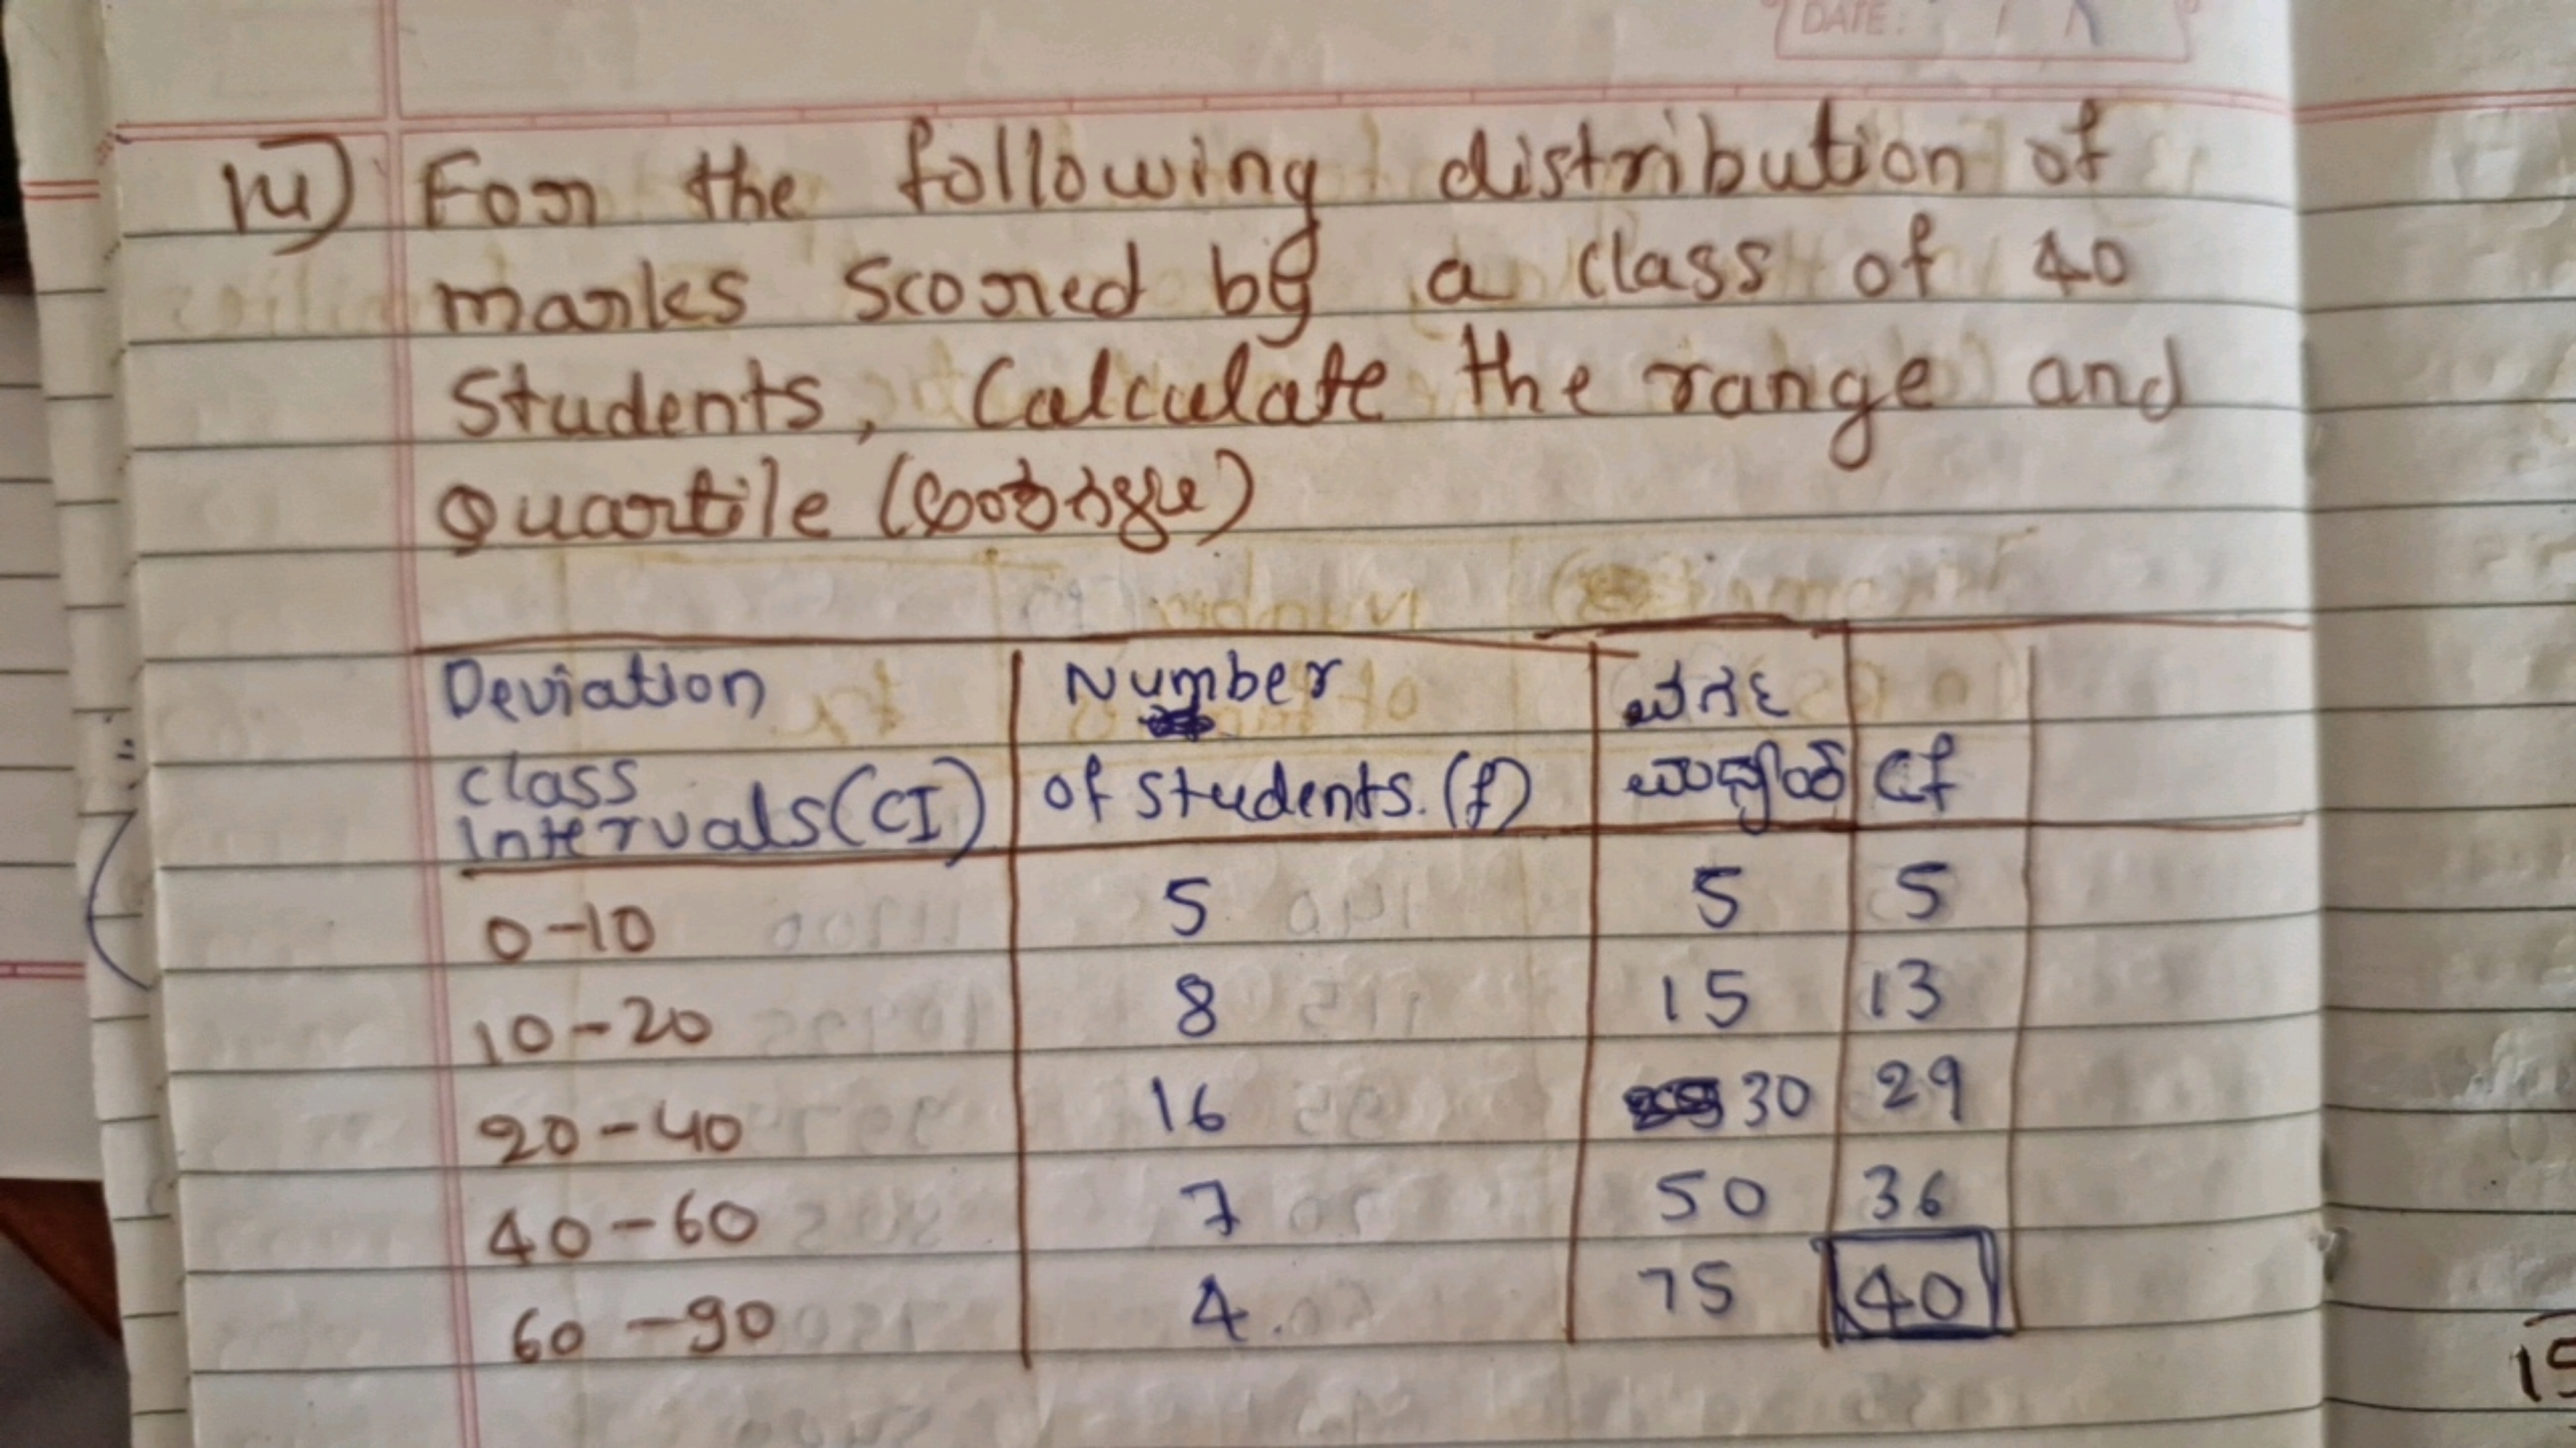 DATE:
14) For the following distribution of
marks scored by a class of 40
Students, Calculate the range and
Quartile
Deviation Number ವರ್ಗ
class of students.(f) ಮಧ್ಯಾಂಕ Cf
intervals(CI)
0-10 5 5 5
10-20 8 15 13
20-40 16 30 29
40-60 7 50 36
60-90 4 75 40